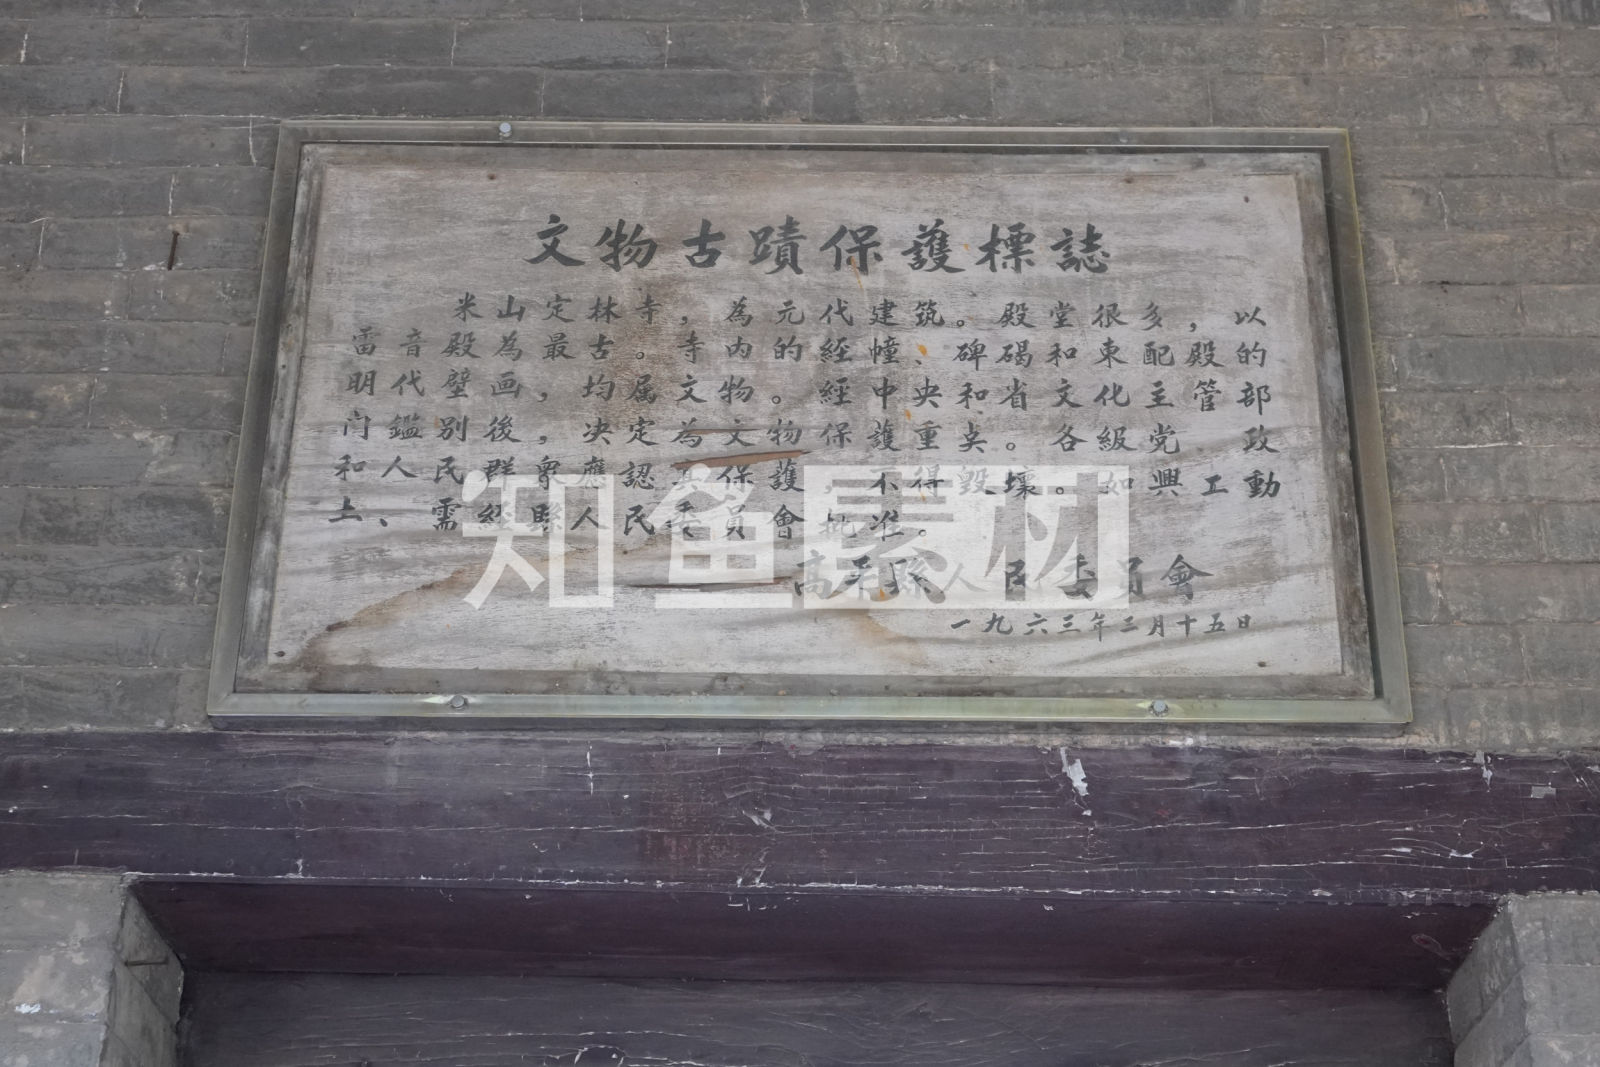 文物古蹟保護標誌
米山定林寺，為元代建筑。殿堂很多，以
雷音殿為最古。寺内的經幢、碑碣和東配殿的
明代壁画，均属文物。經中央和省文化主管部
门鑑别後，决定為文物保護重点。各級党政
和人民群衆應認真保護 不得毁壞。如興工動
土、需經縣人民委員會批准。
高平縣人民委員會
一九六三年二月十五日
知鱼素材